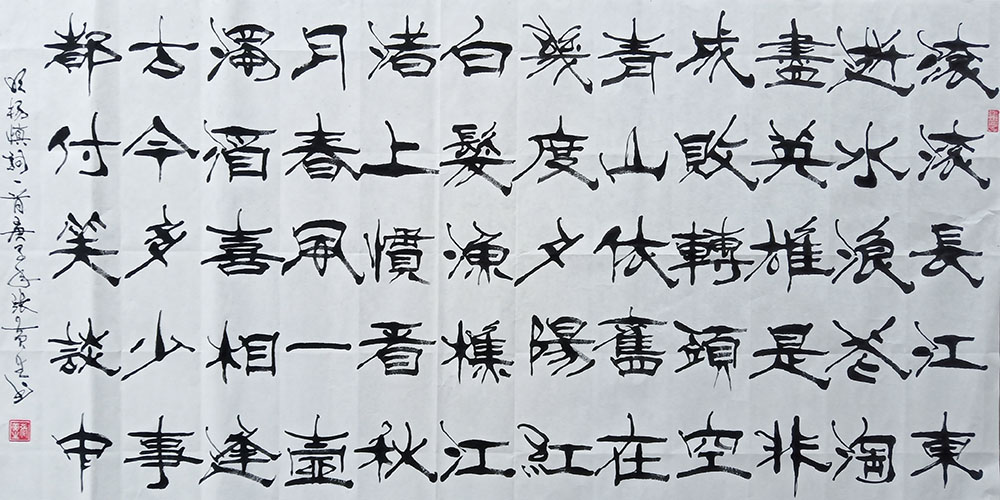 滚滚長江東
逝水浪花淘
盡英雄是非
成敗轉頭空
青山依舊在
幾度夕陽紅
白髮漁樵江
渚上慣看秋
月春風一壺
濁酒喜相逢
古今多少事
都付笑談中
明楊慎詞一首庚子年張